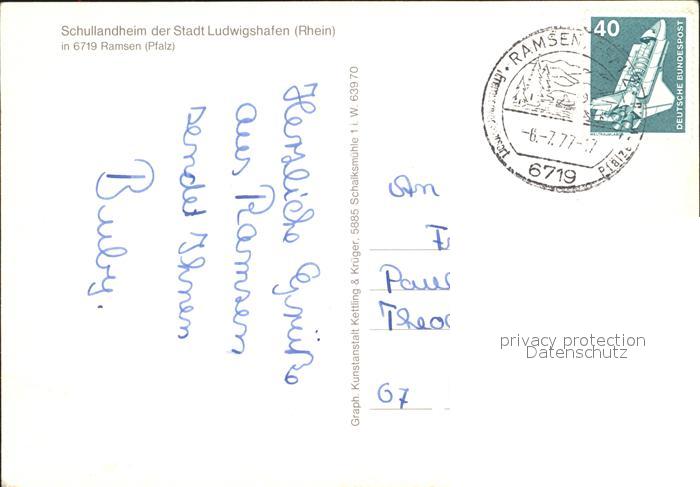 Schullandheim der Stadt Ludwigshafen (Rhein)
in 6719 Ramsen (Pfalz)
Herzliche Grüße
aus Ramsen
sendet Ihnen
Buby.
Graph. Kunstanstalt Kettling & Krüger, 5885 Schalksmühle 1 i. W. 63970
RAMSEN
-6.-7.77-17
6719
Pfalz
40
DEUTSCHE BUNDESPOST
An
F
Paul
Theo
67
privacy protection
Datenschutz